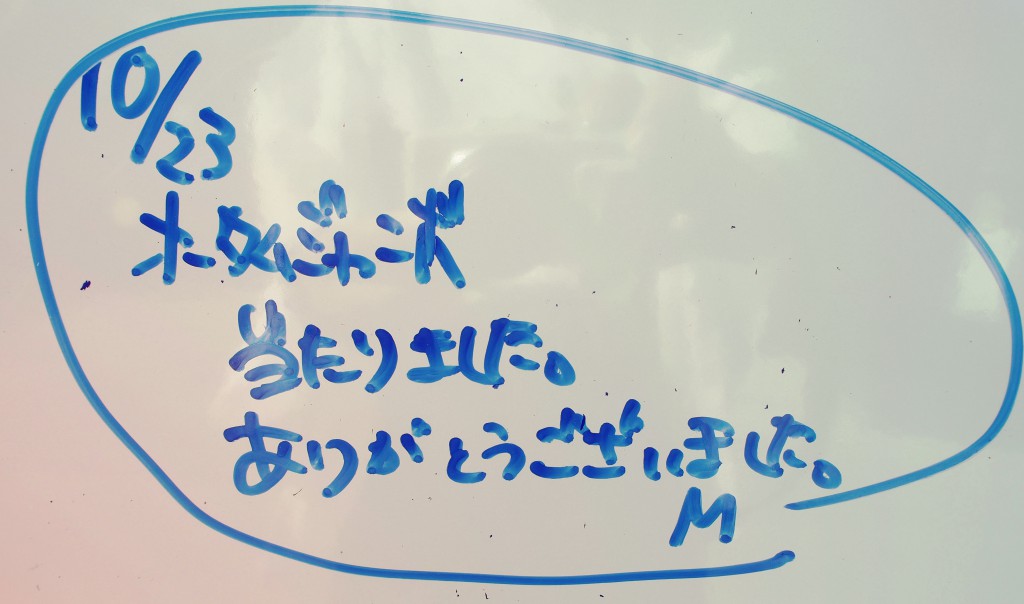 10/23
オータムジャンボ
当たりました。
ありがとうございました。
M